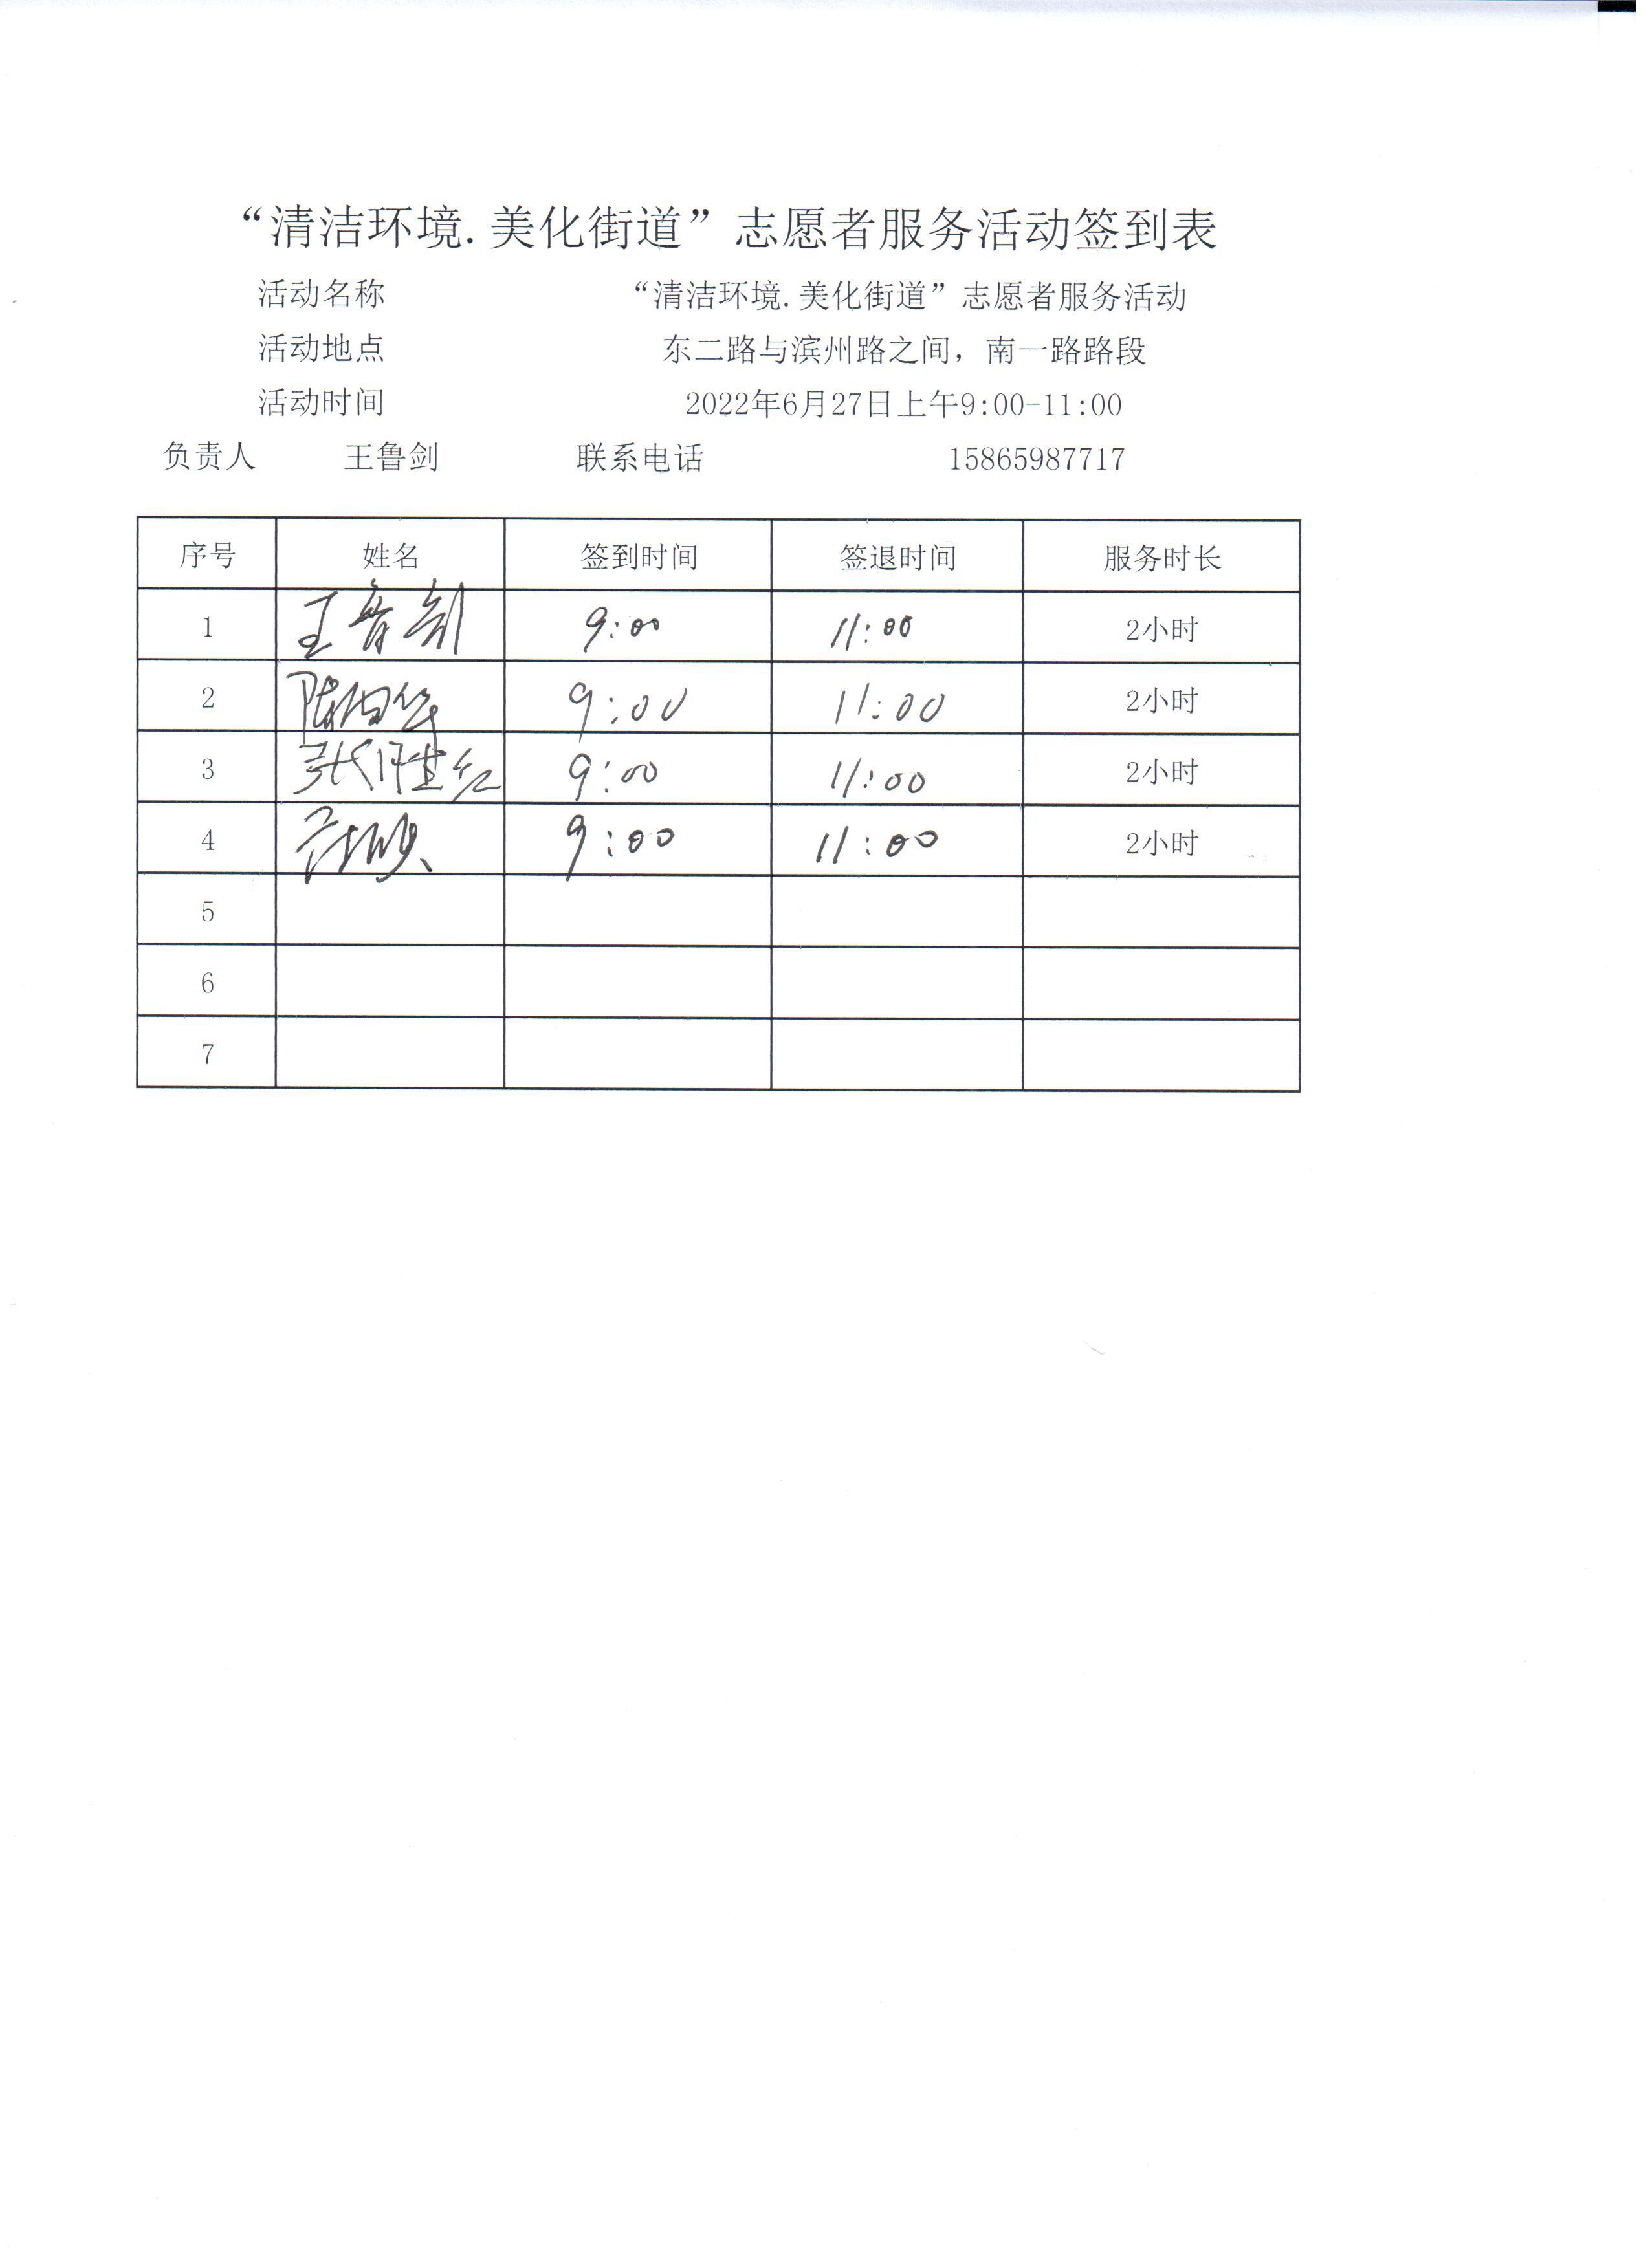 “清洁环境.美化街道”志愿者服务活动签到表
活动名称 “清洁环境.美化街道”志愿者服务活动
活动地点 东二路与滨州路之间，南一路路段
活动时间 2022年6月27日上午9:00-11:00
负责人 王鲁剑 联系电话 15865987717
序号 姓名 签到时间 签退时间 服务时长
1 王鲁剑 9:00 11:00 2小时
2 9:00 11:00 2小时
3 张胜红 9:00 11:00 2小时
4 9:00 11:00 2小时
5
6
7